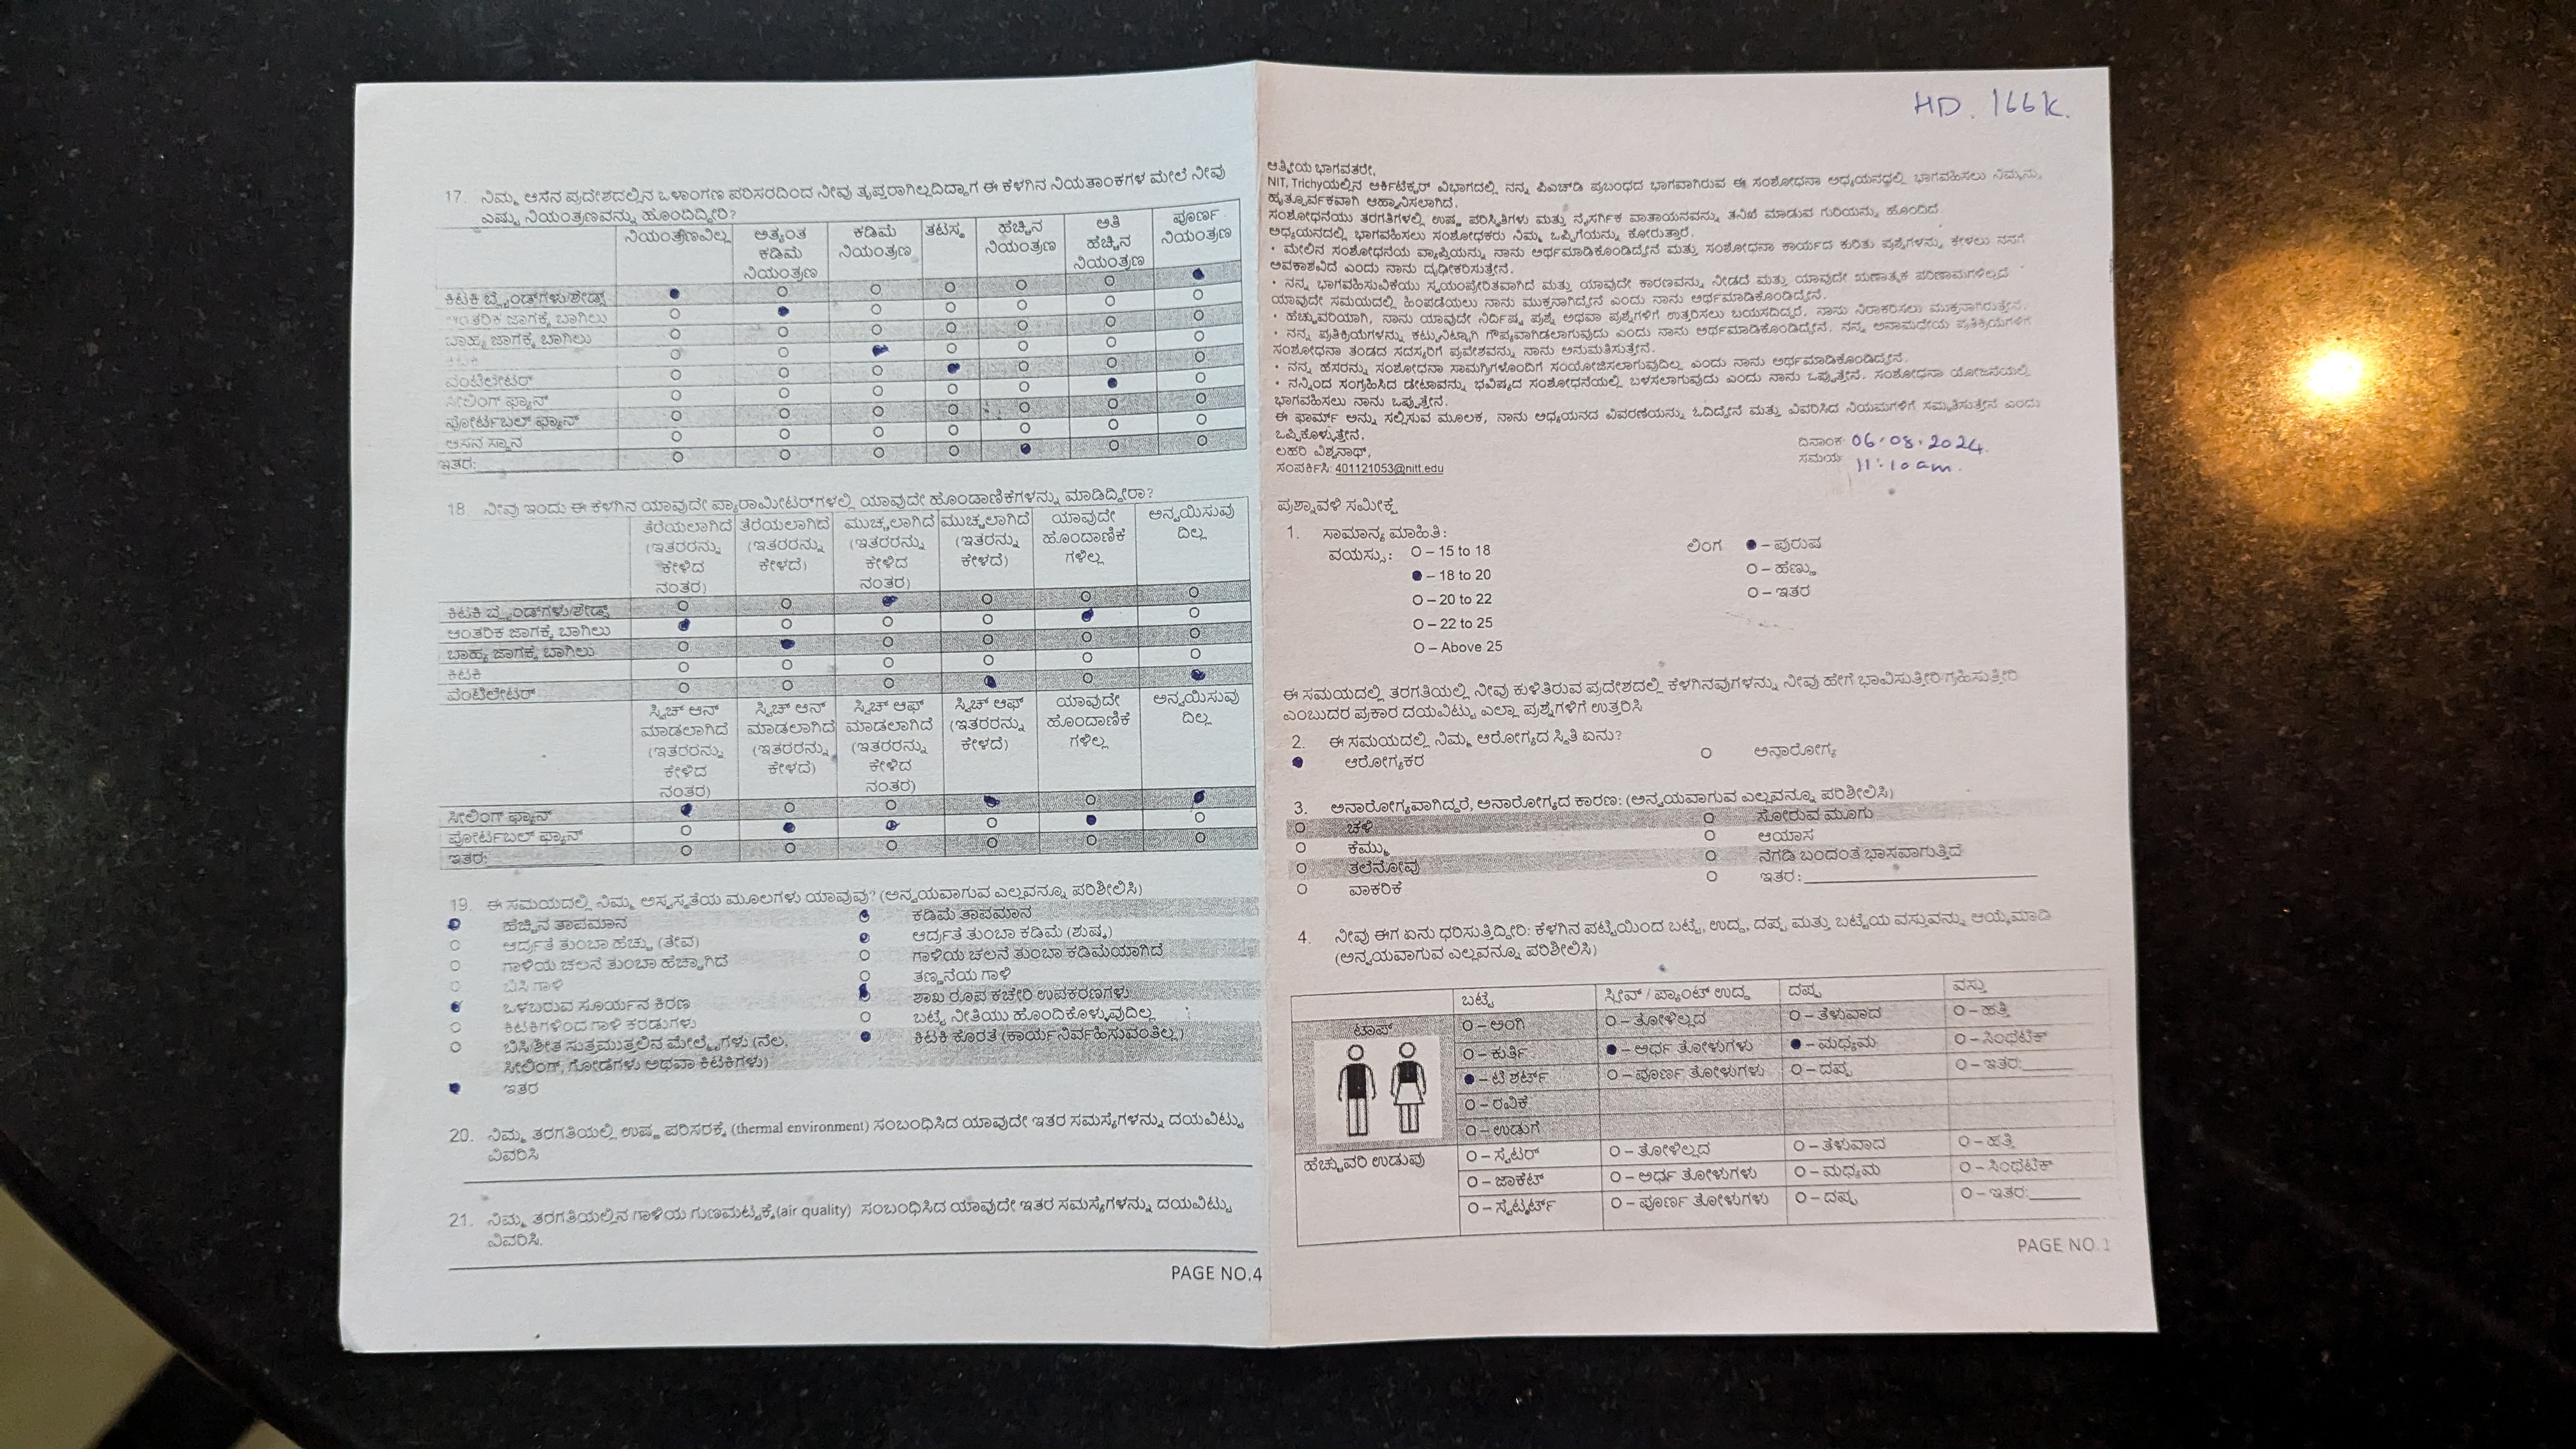 17. ನಿಮ್ಮ ಆಸನ ಪ್ರದೇಶದಲ್ಲಿನ ಒಳಾಂಗಣ ಪರಿಸರದಿಂದ ನೀವು ತೃಪ್ತರಾಗಿಲ್ಲದಿದ್ದಾಗ ಈ ಕೆಳಗಿನ ನಿಯತಾಂಕಗಳ ಮೇಲೆ ನೀವು
ಎಷ್ಟು ನಿಯಂತ್ರಣವನ್ನು ಹೊಂದಿದ್ದೀರಿ?
ನಿಯಂತ್ರಣವಿಲ್ಲ ಅತ್ಯಂತ ಕಡಿಮೆ ನಿಯಂತ್ರಣ ಕಡಿಮೆ ನಿಯಂತ್ರಣ ತಟಸ್ಥ ಹೆಚ್ಚಿನ ನಿಯಂತ್ರಣ ಅತಿ ಹೆಚ್ಚಿನ ನಿಯಂತ್ರಣ ಪೂರ್ಣ ನಿಯಂತ್ರಣ
ಕಿಟಕಿ ಬ್ಲೈಂಡ್‌ಗಳು/ಶೇಡ್ಸ್
ಆಂತರಿಕ ಜಾಗಕ್ಕೆ ಬಾಗಿಲು
ಬಾಹ್ಯ ಜಾಗಕ್ಕೆ ಬಾಗಿಲು
ವೆಂಟಿಲೇಟರ್
ಸೀಲಿಂಗ್ ಫ್ಯಾನ್
ಪೋರ್ಟಬಲ್ ಫ್ಯಾನ್
ಆಸನ ಸ್ಥಾನ
ಇತರ:
18. ನೀವು ಇಂದು ಈ ಕೆಳಗಿನ ಯಾವುದೇ ಪ್ಯಾರಾಮೀಟರ್‌ಗಳಲ್ಲಿ ಯಾವುದೇ ಹೊಂದಾಣಿಕೆಗಳನ್ನು ಮಾಡಿದ್ದೀರಾ?
ತೆರೆಯಲಾಗಿದೆ (ಇತರರನ್ನು ಕೇಳಿದ ನಂತರ) ತೆರೆಯಲಾಗಿದೆ (ಇತರರನ್ನು ಕೇಳದೆ) ಮುಚ್ಚಲಾಗಿದೆ (ಇತರರನ್ನು ಕೇಳಿದ ನಂತರ) ಮುಚ್ಚಲಾಗಿದೆ (ಇತರರನ್ನು ಕೇಳದೆ) ಯಾವುದೇ ಹೊಂದಾಣಿಕೆ ಗಳಿಲ್ಲ ಅನ್ವಯಿಸುವು ದಿಲ್ಲ
ಕಿಟಕಿ ಬ್ಲೈಂಡ್‌ಗಳು/ಶೇಡ್ಸ್
ಆಂತರಿಕ ಜಾಗಕ್ಕೆ ಬಾಗಿಲು
ಬಾಹ್ಯ ಜಾಗಕ್ಕೆ ಬಾಗಿಲು
ಕಿಟಕಿ
ವೆಂಟಿಲೇಟರ್
ಸ್ವಿಚ್ ಆನ್ ಮಾಡಲಾಗಿದೆ (ಇತರರನ್ನು ಕೇಳಿದ ನಂತರ) ಸ್ವಿಚ್ ಆನ್ ಮಾಡಲಾಗಿದೆ (ಇತರರನ್ನು ಕೇಳದೆ) ಸ್ವಿಚ್ ಆಫ್ ಮಾಡಲಾಗಿದೆ (ಇತರರನ್ನು ಕೇಳಿದ ನಂತರ) ಸ್ವಿಚ್ ಆಫ್ (ಇತರರನ್ನು ಕೇಳದೆ) ಯಾವುದೇ ಹೊಂದಾಣಿಕೆ ಗಳಿಲ್ಲ ಅನ್ವಯಿಸುವು ದಿಲ್ಲ
ಸೀಲಿಂಗ್ ಫ್ಯಾನ್
ಪೋರ್ಟಬಲ್ ಫ್ಯಾನ್
ಇತರ:
19. ಈ ಸಮಯದಲ್ಲಿ ನಿಮ್ಮ ಅಸ್ವಸ್ಥತೆಯ ಮೂಲಗಳು ಯಾವುವು? (ಅನ್ವಯವಾಗುವ ಎಲ್ಲವನ್ನೂ ಪರಿಶೀಲಿಸಿ)
ಹೆಚ್ಚಿನ ತಾಪಮಾನ ಕಡಿಮೆ ತಾಪಮಾನ
ಆರ್ದ್ರತೆ ತುಂಬಾ ಹೆಚ್ಚು (ತೇವ) ಆರ್ದ್ರತೆ ತುಂಬಾ ಕಡಿಮೆ (ಶುಷ್ಕ)
ಗಾಳಿಯ ಚಲನೆ ತುಂಬಾ ಹೆಚ್ಚಾಗಿದೆ ಗಾಳಿಯ ಚಲನೆ ತುಂಬಾ ಕಡಿಮೆಯಾಗಿದೆ
ಬಿಸಿ ಗಾಳಿ ತಣ್ಣನೆಯ ಗಾಳಿ
ಒಳಬರುವ ಸೂರ್ಯನ ಕಿರಣ ಶಾಖ ರೂಪ ಕಚೇರಿ ಉಪಕರಣಗಳು
ಕಿಟಕಿಗಳಿಂದ ಗಾಳಿ ಕರಡುಗಳು ಬಟ್ಟೆ ನೀತಿಯು ಹೊಂದಿಕೊಳ್ಳುವುದಿಲ್ಲ
ಬಿಸಿ/ಶೀತ ಸುತ್ತಮುತ್ತಲಿನ ಮೇಲ್ಮೈಗಳು (ನೆಲ, ಕಿಟಕಿ ಕೊರತೆ (ಕಾರ್ಯನಿರ್ವಹಿಸುವಂತಿಲ್ಲ)
ಸೀಲಿಂಗ್, ಗೋಡೆಗಳು ಅಥವಾ ಕಿಟಕಿಗಳು)
ಇತರ
20. ನಿಮ್ಮ ತರಗತಿಯಲ್ಲಿ ಉಷ್ಣ ಪರಿಸರಕ್ಕೆ (thermal environment) ಸಂಬಂಧಿಸಿದ ಯಾವುದೇ ಇತರ ಸಮಸ್ಯೆಗಳನ್ನು ದಯವಿಟ್ಟು
ವಿವರಿಸಿ
21. ನಿಮ್ಮ ತರಗತಿಯಲ್ಲಿನ ಗಾಳಿಯ ಗುಣಮಟ್ಟಕ್ಕೆ(air quality) ಸಂಬಂಧಿಸಿದ ಯಾವುದೇ ಇತರ ಸಮಸ್ಯೆಗಳನ್ನು ದಯವಿಟ್ಟು
ವಿವರಿಸಿ.
PAGE NO.4
HD. 166K.
ಆತ್ಮೀಯ ಭಾಗವತರೇ,
NIT, Trichyಯಲ್ಲಿನ ಆರ್ಕಿಟೆಕ್ಚರ್ ವಿಭಾಗದಲ್ಲಿ ನನ್ನ ಪಿಎಚ್‌ಡಿ ಪ್ರಬಂಧದ ಭಾಗವಾಗಿರುವ ಈ ಸಂಶೋಧನಾ ಅಧ್ಯಯನದಲ್ಲಿ ಭಾಗವಹಿಸಲು ನಿಮ್ಮನ್ನು
ಹೃತ್ಪೂರ್ವಕವಾಗಿ ಆಹ್ವಾನಿಸಲಾಗಿದೆ.
ಸಂಶೋಧನೆಯು ತರಗತಿಗಳಲ್ಲಿ ಉಷ್ಣ ಪರಿಸ್ಥಿತಿಗಳು ಮತ್ತು ನೈಸರ್ಗಿಕ ವಾತಾಯನವನ್ನು ತನಿಖೆ ಮಾಡುವ ಗುರಿಯನ್ನು ಹೊಂದಿದೆ.
ಅಧ್ಯಯನದಲ್ಲಿ ಭಾಗವಹಿಸಲು ಸಂಶೋಧಕರು ನಿಮ್ಮ ಒಪ್ಪಿಗೆಯನ್ನು ಕೋರುತ್ತಾರೆ.
• ಮೇಲಿನ ಸಂಶೋಧನೆಯ ವ್ಯಾಪ್ತಿಯನ್ನು ನಾನು ಅರ್ಥಮಾಡಿಕೊಂಡಿದ್ದೇನೆ ಮತ್ತು ಸಂಶೋಧನಾ ಕಾರ್ಯದ ಕುರಿತು ಪ್ರಶ್ನೆಗಳನ್ನು ಕೇಳಲು ನನಗೆ
ಅವಕಾಶವಿದೆ ಎಂದು ನಾನು ದೃಢೀಕರಿಸುತ್ತೇನೆ.
• ನನ್ನ ಭಾಗವಹಿಸುವಿಕೆಯು ಸ್ವಯಂಪ್ರೇರಿತವಾಗಿದೆ ಮತ್ತು ಯಾವುದೇ ಕಾರಣವನ್ನು ನೀಡದೆ ಮತ್ತು ಯಾವುದೇ ಋಣಾತ್ಮಕ ಪರಿಣಾಮಗಳಿಲ್ಲದೆ
ಯಾವುದೇ ಸಮಯದಲ್ಲಿ ಹಿಂಪಡೆಯಲು ನಾನು ಮುಕ್ತನಾಗಿದ್ದೇನೆ ಎಂದು ನಾನು ಅರ್ಥಮಾಡಿಕೊಂಡಿದ್ದೇನೆ.
• ಹೆಚ್ಚುವರಿಯಾಗಿ, ನಾನು ಯಾವುದೇ ನಿರ್ದಿಷ್ಟ ಪ್ರಶ್ನೆ ಅಥವಾ ಪ್ರಶ್ನೆಗಳಿಗೆ ಉತ್ತರಿಸಲು ಬಯಸದಿದ್ದರೆ, ನಾನು ನಿರಾಕರಿಸಲು ಮುಕ್ತನಾಗಿರುತ್ತೇನೆ.
• ನನ್ನ ಪ್ರತಿಕ್ರಿಯೆಗಳನ್ನು ಕಟ್ಟುನಿಟ್ಟಾಗಿ ಗೌಪ್ಯವಾಗಿಡಲಾಗುವುದು ಎಂದು ನಾನು ಅರ್ಥಮಾಡಿಕೊಂಡಿದ್ದೇನೆ. ನನ್ನ ಅನಾಮಧೇಯ ಪ್ರತಿಕ್ರಿಯೆಗಳಿಗೆ
ಸಂಶೋಧನಾ ತಂಡದ ಸದಸ್ಯರಿಗೆ ಪ್ರವೇಶವನ್ನು ನಾನು ಅನುಮತಿಸುತ್ತೇನೆ.
• ನನ್ನ ಹೆಸರನ್ನು ಸಂಶೋಧನಾ ಸಾಮಗ್ರಿಗಳೊಂದಿಗೆ ಸಂಯೋಜಿಸಲಾಗುವುದಿಲ್ಲ ಎಂದು ನಾನು ಅರ್ಥಮಾಡಿಕೊಂಡಿದ್ದೇನೆ.
• ನನ್ನಿಂದ ಸಂಗ್ರಹಿಸಿದ ಡೇಟಾವನ್ನು ಭವಿಷ್ಯದ ಸಂಶೋಧನೆಯಲ್ಲಿ ಬಳಸಲಾಗುವುದು ಎಂದು ನಾನು ಒಪ್ಪುತ್ತೇನೆ. ಸಂಶೋಧನಾ ಯೋಜನೆಯಲ್ಲಿ
ಭಾಗವಹಿಸಲು ನಾನು ಒಪ್ಪುತ್ತೇನೆ.
ಈ ಫಾರ್ಮ್ ಅನ್ನು ಸಲ್ಲಿಸುವ ಮೂಲಕ, ನಾನು ಅಧ್ಯಯನದ ವಿವರಣೆಯನ್ನು ಓದಿದ್ದೇನೆ ಮತ್ತು ವಿವರಿಸಿದ ನಿಯಮಗಳಿಗೆ ಸಮ್ಮತಿಸುತ್ತೇನೆ ಎಂದು
ಒಪ್ಪಿಕೊಳ್ಳುತ್ತೇನೆ.
ಲಹರಿ ವಿಶ್ವನಾಥ್,
ಸಂಪರ್ಕಿಸಿ: 401121053@nitt.edu
ದಿನಾಂಕ: 06.08.2024
ಸಮಯ: 11:10am.
ಪ್ರಶ್ನಾವಳಿ ಸಮೀಕ್ಷೆ
1. ಸಾಮಾನ್ಯ ಮಾಹಿತಿ:
ವಯಸ್ಸು: O – 15 to 18 ಲಿಂಗ – ಪುರುಷ
– 18 to 20 O – ಹೆಣ್ಣು
O – 20 to 22 O – ಇತರ
O – 22 to 25
O – Above 25
ಈ ಸಮಯದಲ್ಲಿ ತರಗತಿಯಲ್ಲಿ ನೀವು ಕುಳಿತಿರುವ ಪ್ರದೇಶದಲ್ಲಿ ಕೆಳಗಿನವುಗಳನ್ನು ನೀವು ಹೇಗೆ ಭಾವಿಸುತ್ತೀರಿ/ಗ್ರಹಿಸುತ್ತೀರಿ
ಎಂಬುದರ ಪ್ರಕಾರ ದಯವಿಟ್ಟು ಎಲ್ಲಾ ಪ್ರಶ್ನೆಗಳಿಗೆ ಉತ್ತರಿಸಿ
2. ಈ ಸಮಯದಲ್ಲಿ ನಿಮ್ಮ ಆರೋಗ್ಯದ ಸ್ಥಿತಿ ಏನು?
ಆರೋಗ್ಯಕರ ಅನಾರೋಗ್ಯ
3. ಅನಾರೋಗ್ಯವಾಗಿದ್ದರೆ, ಅನಾರೋಗ್ಯದ ಕಾರಣ: (ಅನ್ವಯವಾಗುವ ಎಲ್ಲವನ್ನೂ ಪರಿಶೀಲಿಸಿ)
ಚಳಿ ಸೋರುವ ಮೂಗು
ಕೆಮ್ಮು ಆಯಾಸ
ತಲೆನೋವು ನೆಗಡಿ ಬಂದಂತೆ ಭಾಸವಾಗುತ್ತಿದೆ
ವಾಕರಿಕೆ ಇತರ:
4. ನೀವು ಈಗ ಏನು ಧರಿಸುತ್ತಿದ್ದೀರಿ: ಕೆಳಗಿನ ಪಟ್ಟಿಯಿಂದ ಬಟ್ಟೆ, ಉದ್ದ, ದಪ್ಪ ಮತ್ತು ಬಟ್ಟೆಯ ವಸ್ತುವನ್ನು ಆಯ್ಕೆಮಾಡಿ
(ಅನ್ವಯವಾಗುವ ಎಲ್ಲವನ್ನೂ ಪರಿಶೀಲಿಸಿ)
ಬಟ್ಟೆ ಸ್ಲೀವ್ / ಪ್ಯಾಂಟ್ ಉದ್ದ ದಪ್ಪ ವಸ್ತು
ಟಾಪ್ O – ಅಂಗಿ O – ತೋಳಿಲ್ಲದ O – ತೆಳುವಾದ O – ಹತ್ತಿ
O – ಕುರ್ತಿ – ಅರ್ಧ ತೋಳುಗಳು – ಮಧ್ಯಮ O – ಸಿಂಥೆಟಿಕ್
– ಟಿ ಶರ್ಟ್ O – ಪೂರ್ಣ ತೋಳುಗಳು O – ದಪ್ಪ O – ಇತರ:
O – ರವಿಕೆ
O – ಉಡುಗೆ
ಹೆಚ್ಚುವರಿ ಉಡುಪು O – ಸ್ವೆಟರ್ O – ತೋಳಿಲ್ಲದ O – ತೆಳುವಾದ O – ಹತ್ತಿ
O – ಜಾಕೆಟ್ O – ಅರ್ಧ ತೋಳುಗಳು O – ಮಧ್ಯಮ O – ಸಿಂಥೆಟಿಕ್
O – ಸ್ವೆಟ್ಶರ್ಟ್ O – ಪೂರ್ಣ ತೋಳುಗಳು O – ದಪ್ಪ O – ಇತರ:
PAGE NO.1